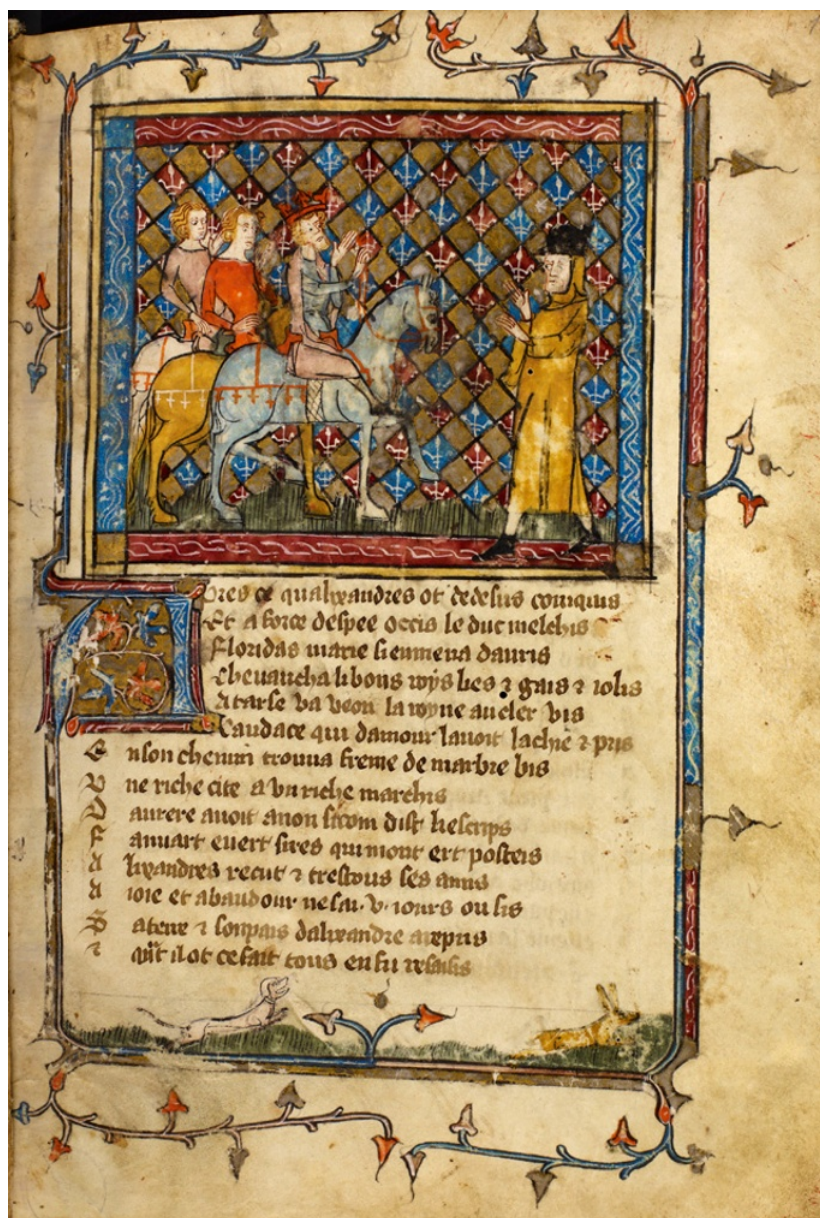 Apres ce qualixandres ot dedefus conquis
Et a force despee occis le duc melchis
Floridas marie si enmena dauris
Chevaucha li bons roys lies ⁊ gais ⁊ iolis
A tarse va veoir la royne au cler vis
Caudace qui damour lavoit lachie ⁊ pris
En son chemin trouua freme de marbre bis
Vne riche cite a vn riche marchis
Daurere auoit a non si com dist li escrips
F anuart en ert sires qui mout ert posteis
Alixandres recut ⁊ trestous ses amis
A ioie et a baudour ne sai .v. iours ou sis
Sa terre ⁊ son pais dalixandre a repris
⁊ qnt il ot ce fait tous en fu resaisis